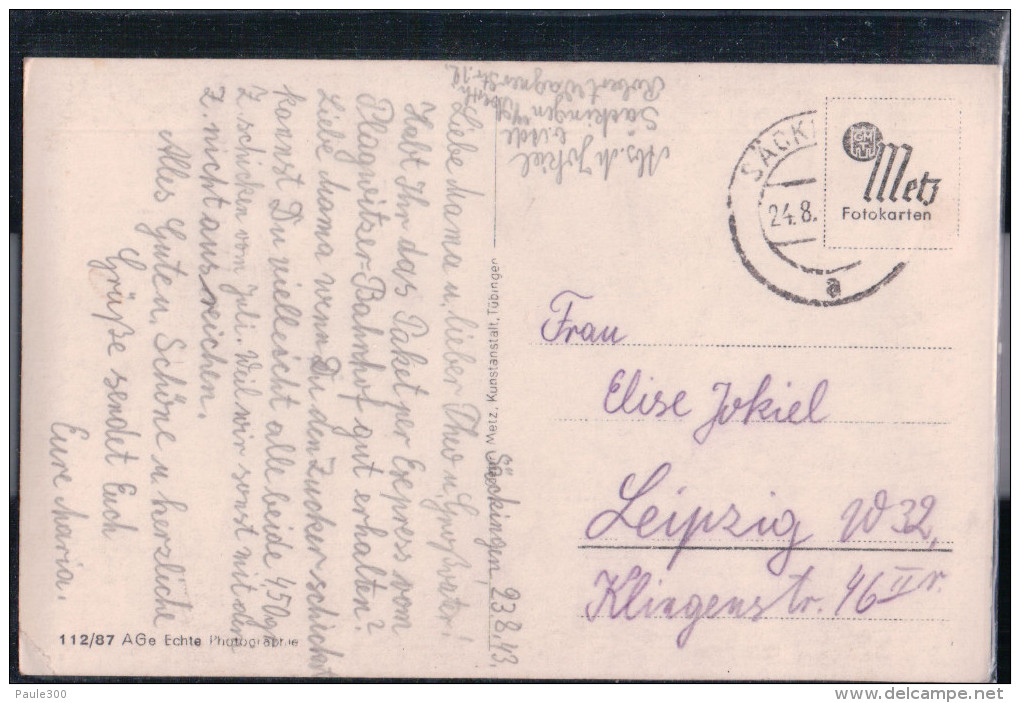 Säckingen, 23.8.43.
Liebe Mama u. lieber Theo u. Großvater!
Habt Ihr das Paket per Express vom
Plagwitzer-Bahnhof gut erhalten?
Liebe Mama wenn Du den Zucker schickst
kannst Du vielleicht alle beide 450g
z. schicken vom Juli. Weil wir sonst mit dem
z. nicht ausreichen.
Alles Guten, Schöne u. herzliche
Grüße sendet Euch
Eure Maria.
Abs. M. Jokiel
Säckingen
Robert Wagner Str. 12.
SÄCKI
24.8.
a
GM
Metz
Fotokarten
Frau
Elise Jokiel
Leipzig W 32,
Klingenstr. 46 II r.
Metz, Kunstanstalt, Tübingen
112/87 AGe Echte Photographie
Paule300
www.delcampe.net